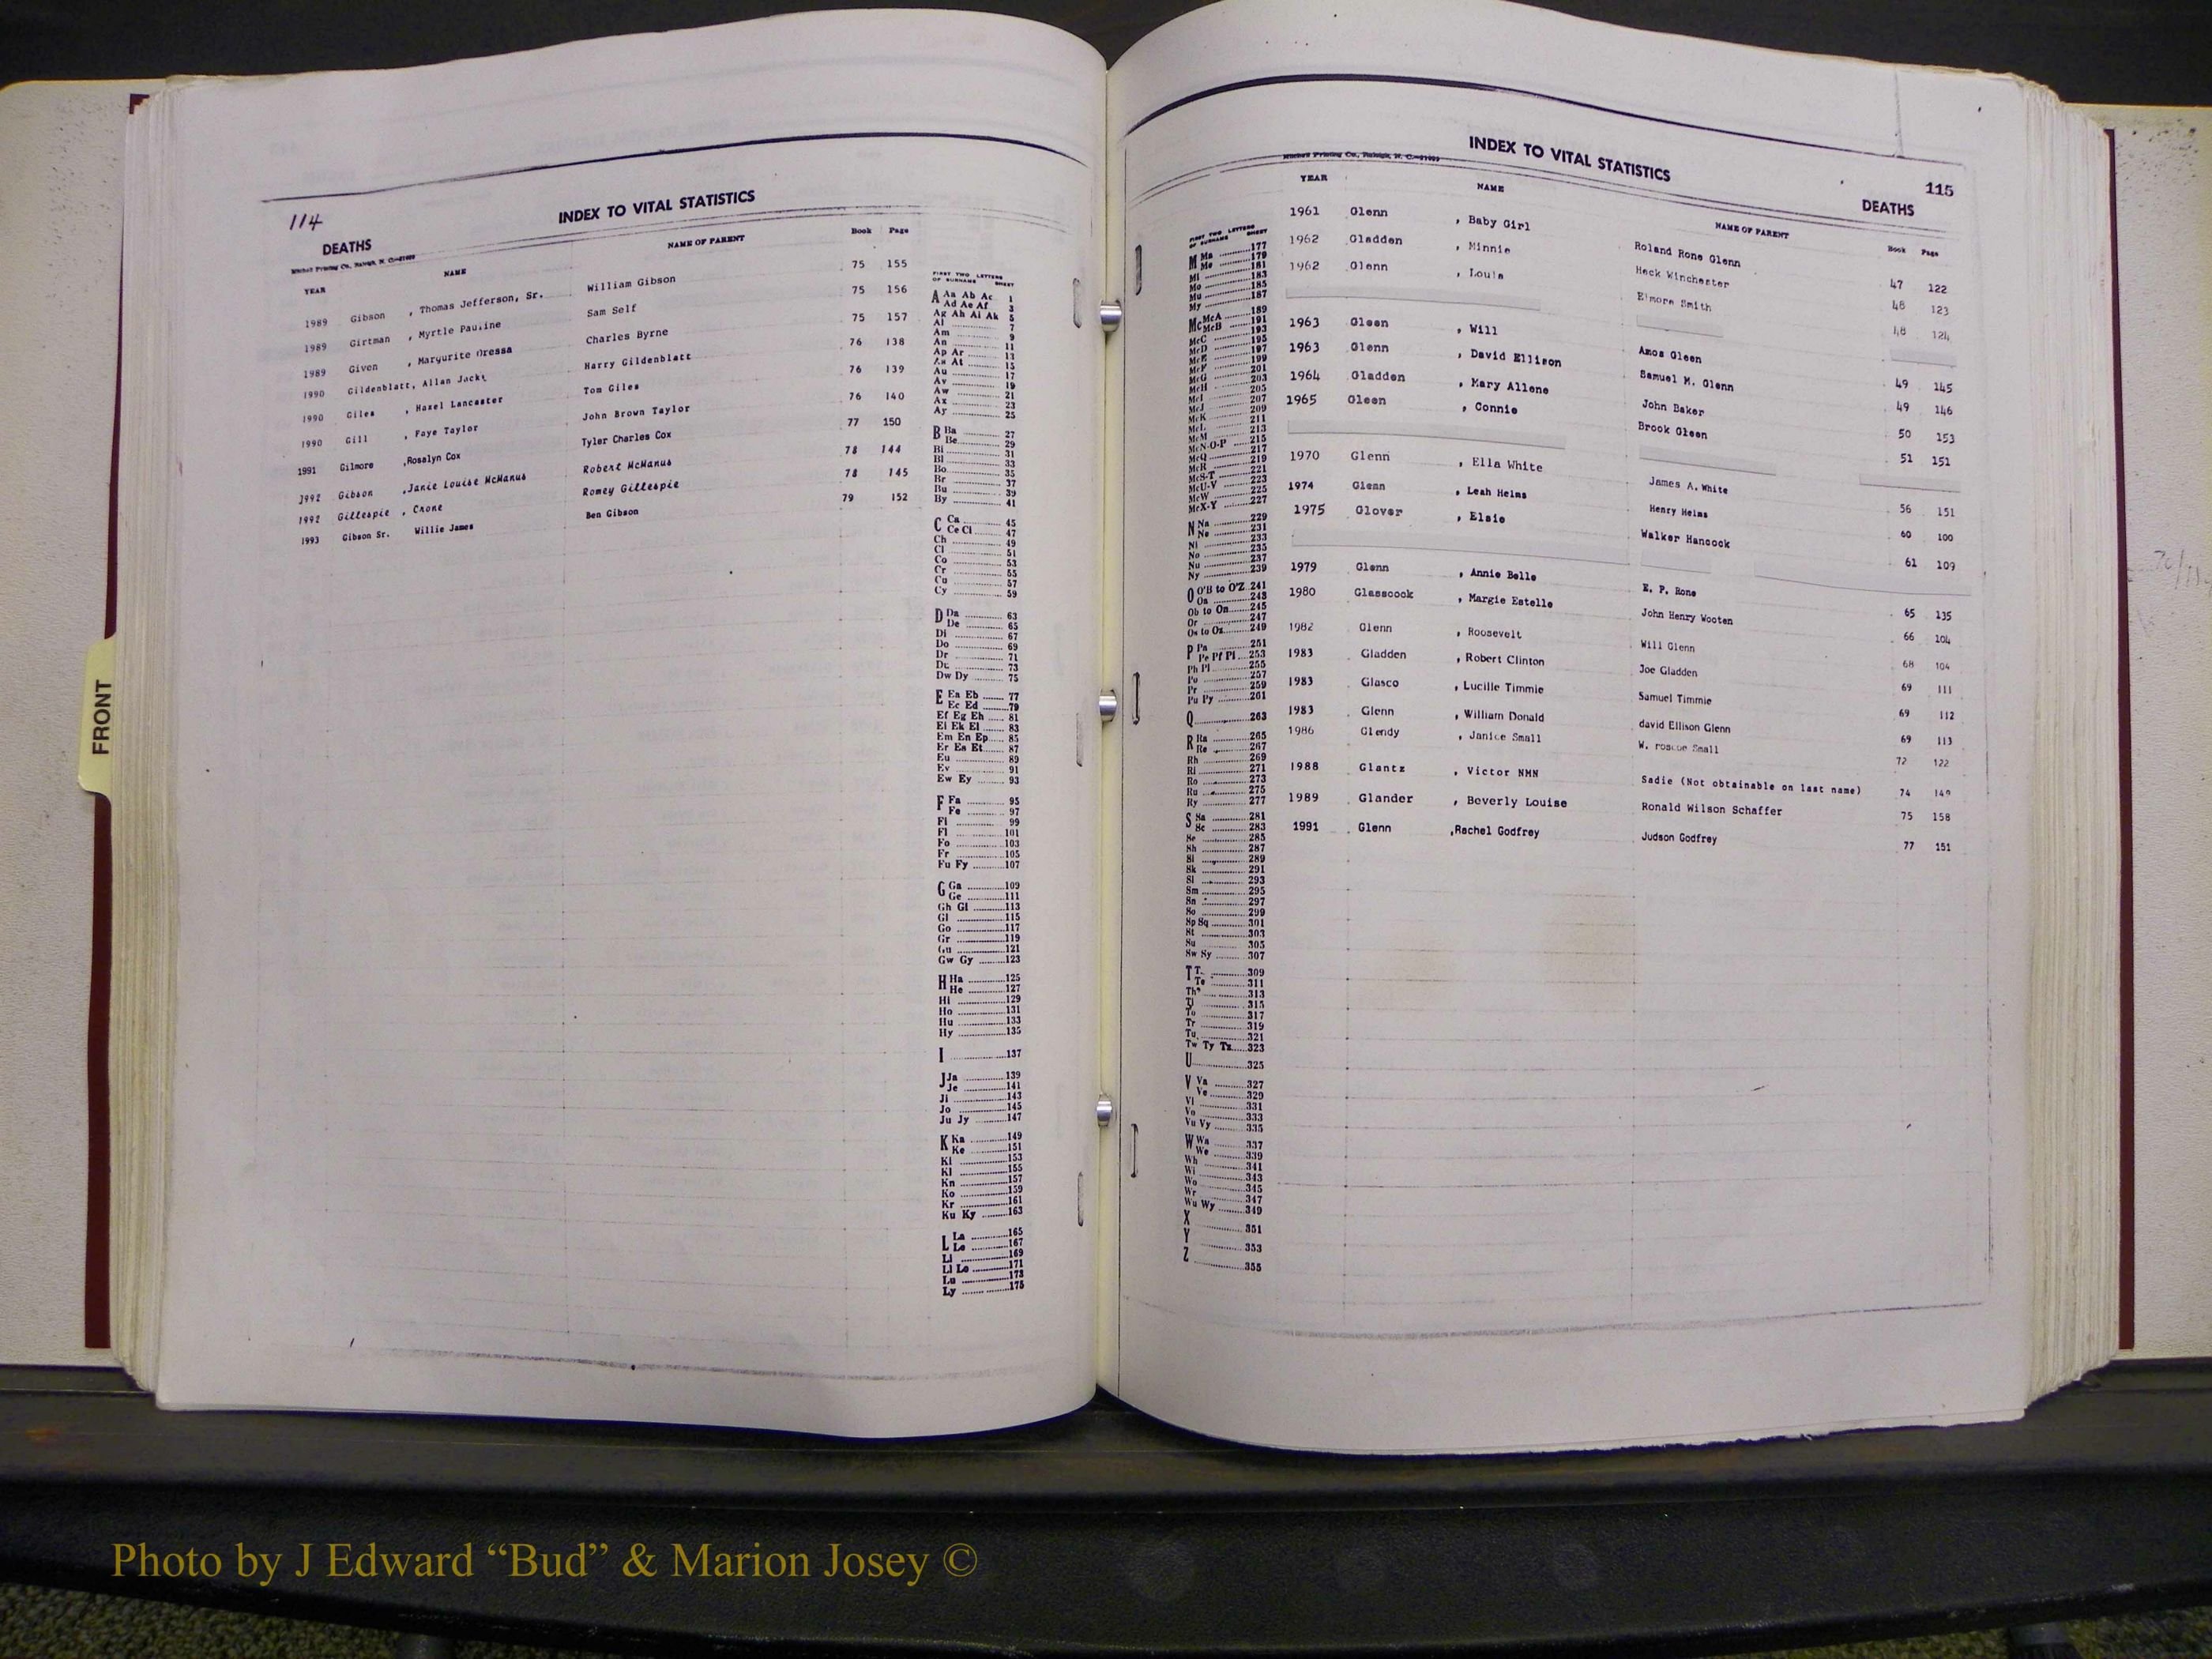 114
INDEX TO VITAL STATISTICS
DEATHS
Mitchell Printing Co., Raleigh, N. C.
YEAR NAME NAME OF PARENT Book Page
1989 Gibson , Thomas Jefferson, Sr. William Gibson 75 155
1989 Girtman , Myrtle Pauline Sam Self 75 156
1989 Given , Margurite Dressa Charles Byrne 75 157
1990 Gildenblatt, Allan Jack Harry Gildenblatt 76 138
1990 Giles , Hazel Lancaster Tom Giles 76 139
1990 Gill , Faye Taylor John Brown Taylor 76 140
1991 Gilmore ,Rosalyn Cox Tyler Charles Cox 77 150
1992 Gibson ,Janie Louise McManus Robert McManus 78 144
1992 Gillespie , Crone Romey Gillespie 78 145
1993 Gibson Sr. Willie James Ben Gibson 79 152
FIRST TWO LETTERS
OF SURNAME SHEET
A Aa Ab Ac 1
Ad Ae Af 3
Ag Ah Ai Ak 5
Al 7
Am 9
An 11
Ap Ar 13
As At 15
Au 17
Av 19
Aw 21
Ax 23
Ay 25
B Ba 27
Be 29
Bi 31
Bl 33
Bo 35
Br 37
Bu 39
By 41
C Ca 45
Ce Ci 47
Ch 49
Cl 51
Co 53
Cr 55
Cu 57
Cy 59
D Da 63
De 65
Di 67
Do 69
Dr 71
Du 73
Dw Dy 75
E Ea Eb 77
Ec Ed 79
Ef Eg Eh 81
Ei Ek El 83
Em En Ep 85
Er Es Et 87
Eu 89
Ev 91
Ew Ey 93
F Fa 95
Fe 97
Fi 99
Fl 101
Fo 103
Fr 105
Fu Fy 107
G Ga 109
Ge 111
Gh Gi 113
Gl 115
Go 117
Gr 119
Gu 121
Gw Gy 123
H Ha 125
He 127
Hi 129
Ho 131
Hu 133
Hy 135
I 137
J Ja 139
Je 141
Ji 143
Jo 145
Ju Jy 147
K Ka 149
Ke 151
Ki 153
Kl 155
Kn 157
Ko 159
Kr 161
Ku Ky 163
L La 165
Le 167
Li 169
Ll Lo 171
Lu 173
Ly 175
INDEX TO VITAL STATISTICS
115
DEATHS
Mitchell Printing Co., Raleigh, N. C.
YEAR NAME NAME OF PARENT Book Page
1961 Glenn , Baby Girl Roland Rone Glenn 47 122
1962 Gladden , Minnie Heck Winchester 48 123
1962 Glenn , Louis Elmore Smith 48 124
1963 Gleen , Will Amos Gleen 49 145
1963 Glenn , David Ellison Samuel M. Glenn 49 146
1964 Gladden , Mary Allene John Baker 50 153
1965 Gleen , Connie Brook Gleen 51 151
1970 Glenn , Ella White James A. White 56 151
1974 Glenn , Leah Helms Henry Helms 60 100
1975 Glover , Elsie Walker Hancock 61 109
1979 Glenn , Annie Belle E. P. Rone 65 135
1980 Glasscock , Margie Estelle John Henry Wooten 66 104
1982 Glenn , Roosevelt Will Glenn 68 104
1983 Gladden , Robert Clinton Joe Gladden 69 111
1983 Glasco , Lucille Timmie Samuel Timmie 69 112
1983 Glenn , William Donald david Ellison Glenn 69 113
1986 Glendy , Janice Small W. roscoe Small 72 122
1988 Glantz , Victor NMN Sadie (Not obtainable on last name) 74 149
1989 Glander , Beverly Louise Ronald Wilson Schaffer 75 158
1991 Glenn ,Rachel Godfrey Judson Godfrey 77 151
FIRST TWO LETTERS
OF SURNAME SHEET
M Ma 177
Me 179
Mi 183
Mo 185
Mu 187
My
Mc McA 189
McB 191
McC 193
McD 195
McE 197
McF 199
McG 201
McH 203
McI 205
McJ 207
McK 209
McL 211
McM 213
McN-O-P 215
McQ 217
McR 219
McS-T 221
McU-V 223
McW 225
McX-Y 227
N Na 229
Ne 231
Ni 233
No 235
Nu 237
Ny 239
O O'B to O'Z 241
Oa 243
Ob to On 245
Or 247
Os to Oz 249
P Pa 251
Pe Pf Pi 253
Ph Pl 255
Po 257
Pr 259
Pu Py 261
Q 263
R Ra 265
Re 267
Rh 269
Ri 271
Ro 273
Ru 275
Ry 277
S Sa 281
Sc 283
Se 285
Sh 287
Si 289
Sk 291
Sl 293
Sm 295
Sn 297
So 299
Sp Sq 301
St 303
Su 305
Sw Sy 307
T 309
Te 311
Th 313
Ti 315
To 317
Tr 319
Tu 321
Tw Ty Tz 323
U 325
V Va 327
Ve 329
Vi 331
Vo 333
Vu Vy 335
W Wa 337
We 339
Wh 341
Wi 343
Wo 345
Wr 347
Wu Wy 349
X 351
Y 353
Z 355
FRONT
Photo by J Edward “Bud” & Marion Josey ©